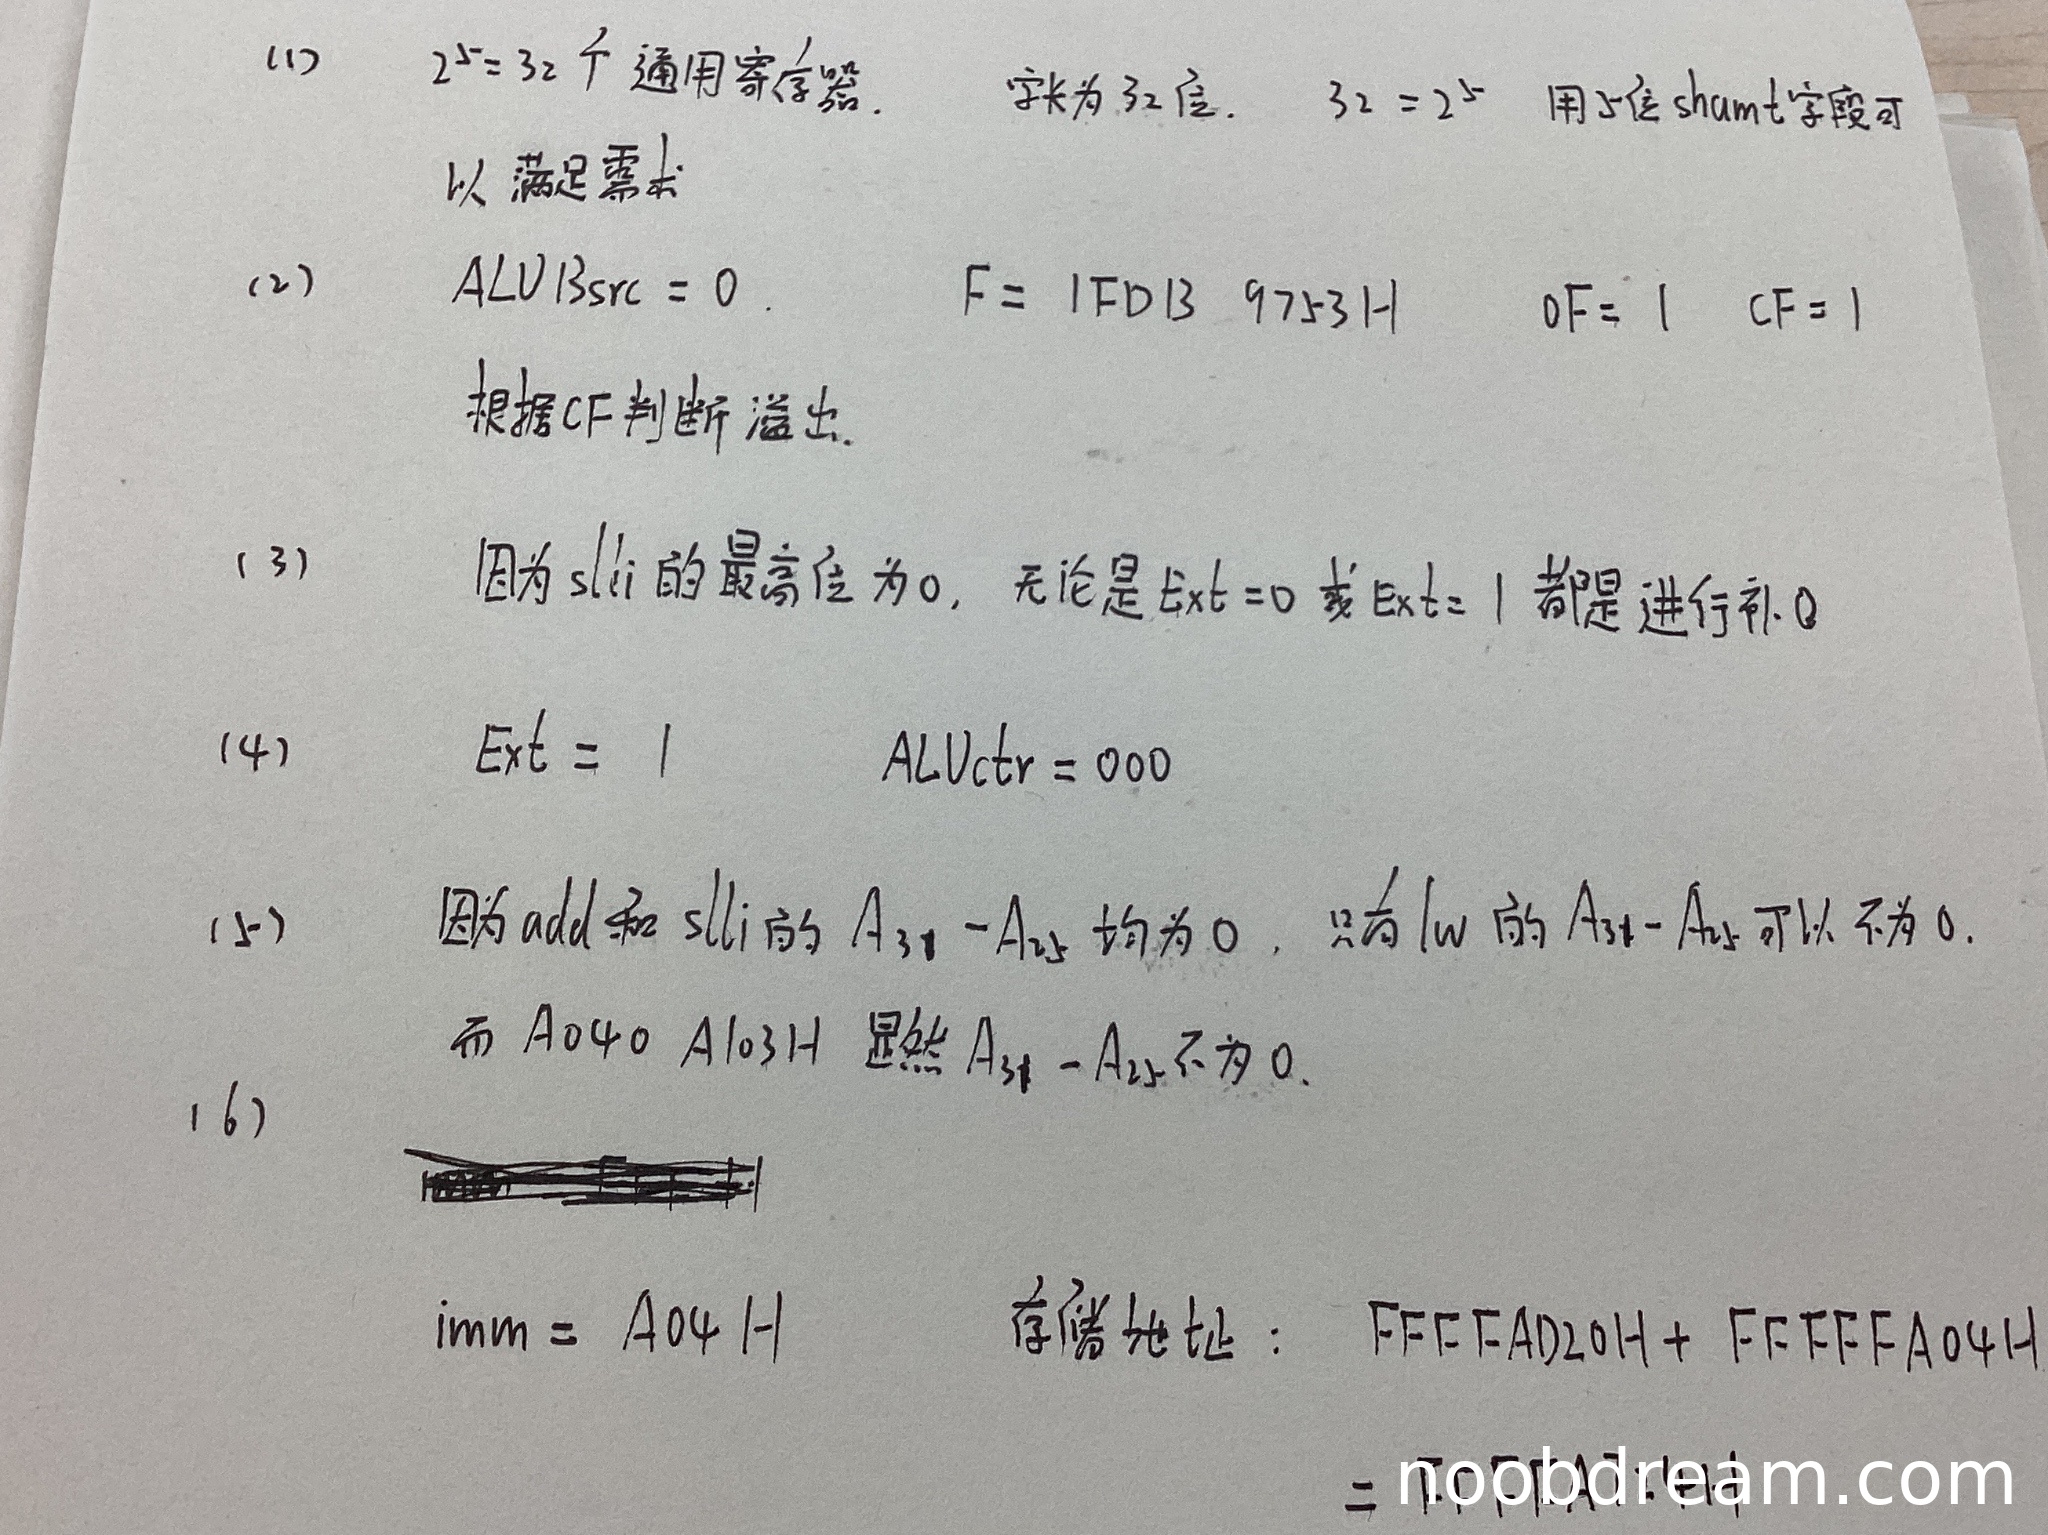 (1) 2⁵=32个通用寄存器. 字长为32位. 32=2⁵ 用5位shamt字段可
以满足需求
(2) ALUBsrc = 0. F = 1FDB 9753H OF = 1 CF = 1
根据CF判断溢出.
(3) 因为slli的最高位为0, 无论是Ext=0或Ext=1都是进行补0
(4) Ext = 1 ALUctr = 000
(5) 因为add和slli的A₃₁-A₂₅均为0, 只有lw的A₃₁-A₂₅可以不为0.
而A040 A103H 显然A₃₁-A₂₅不为0.
(6)
imm = A04H 存储地址: FFFFAD20H + FFFFFA04H
=
noobdream.com